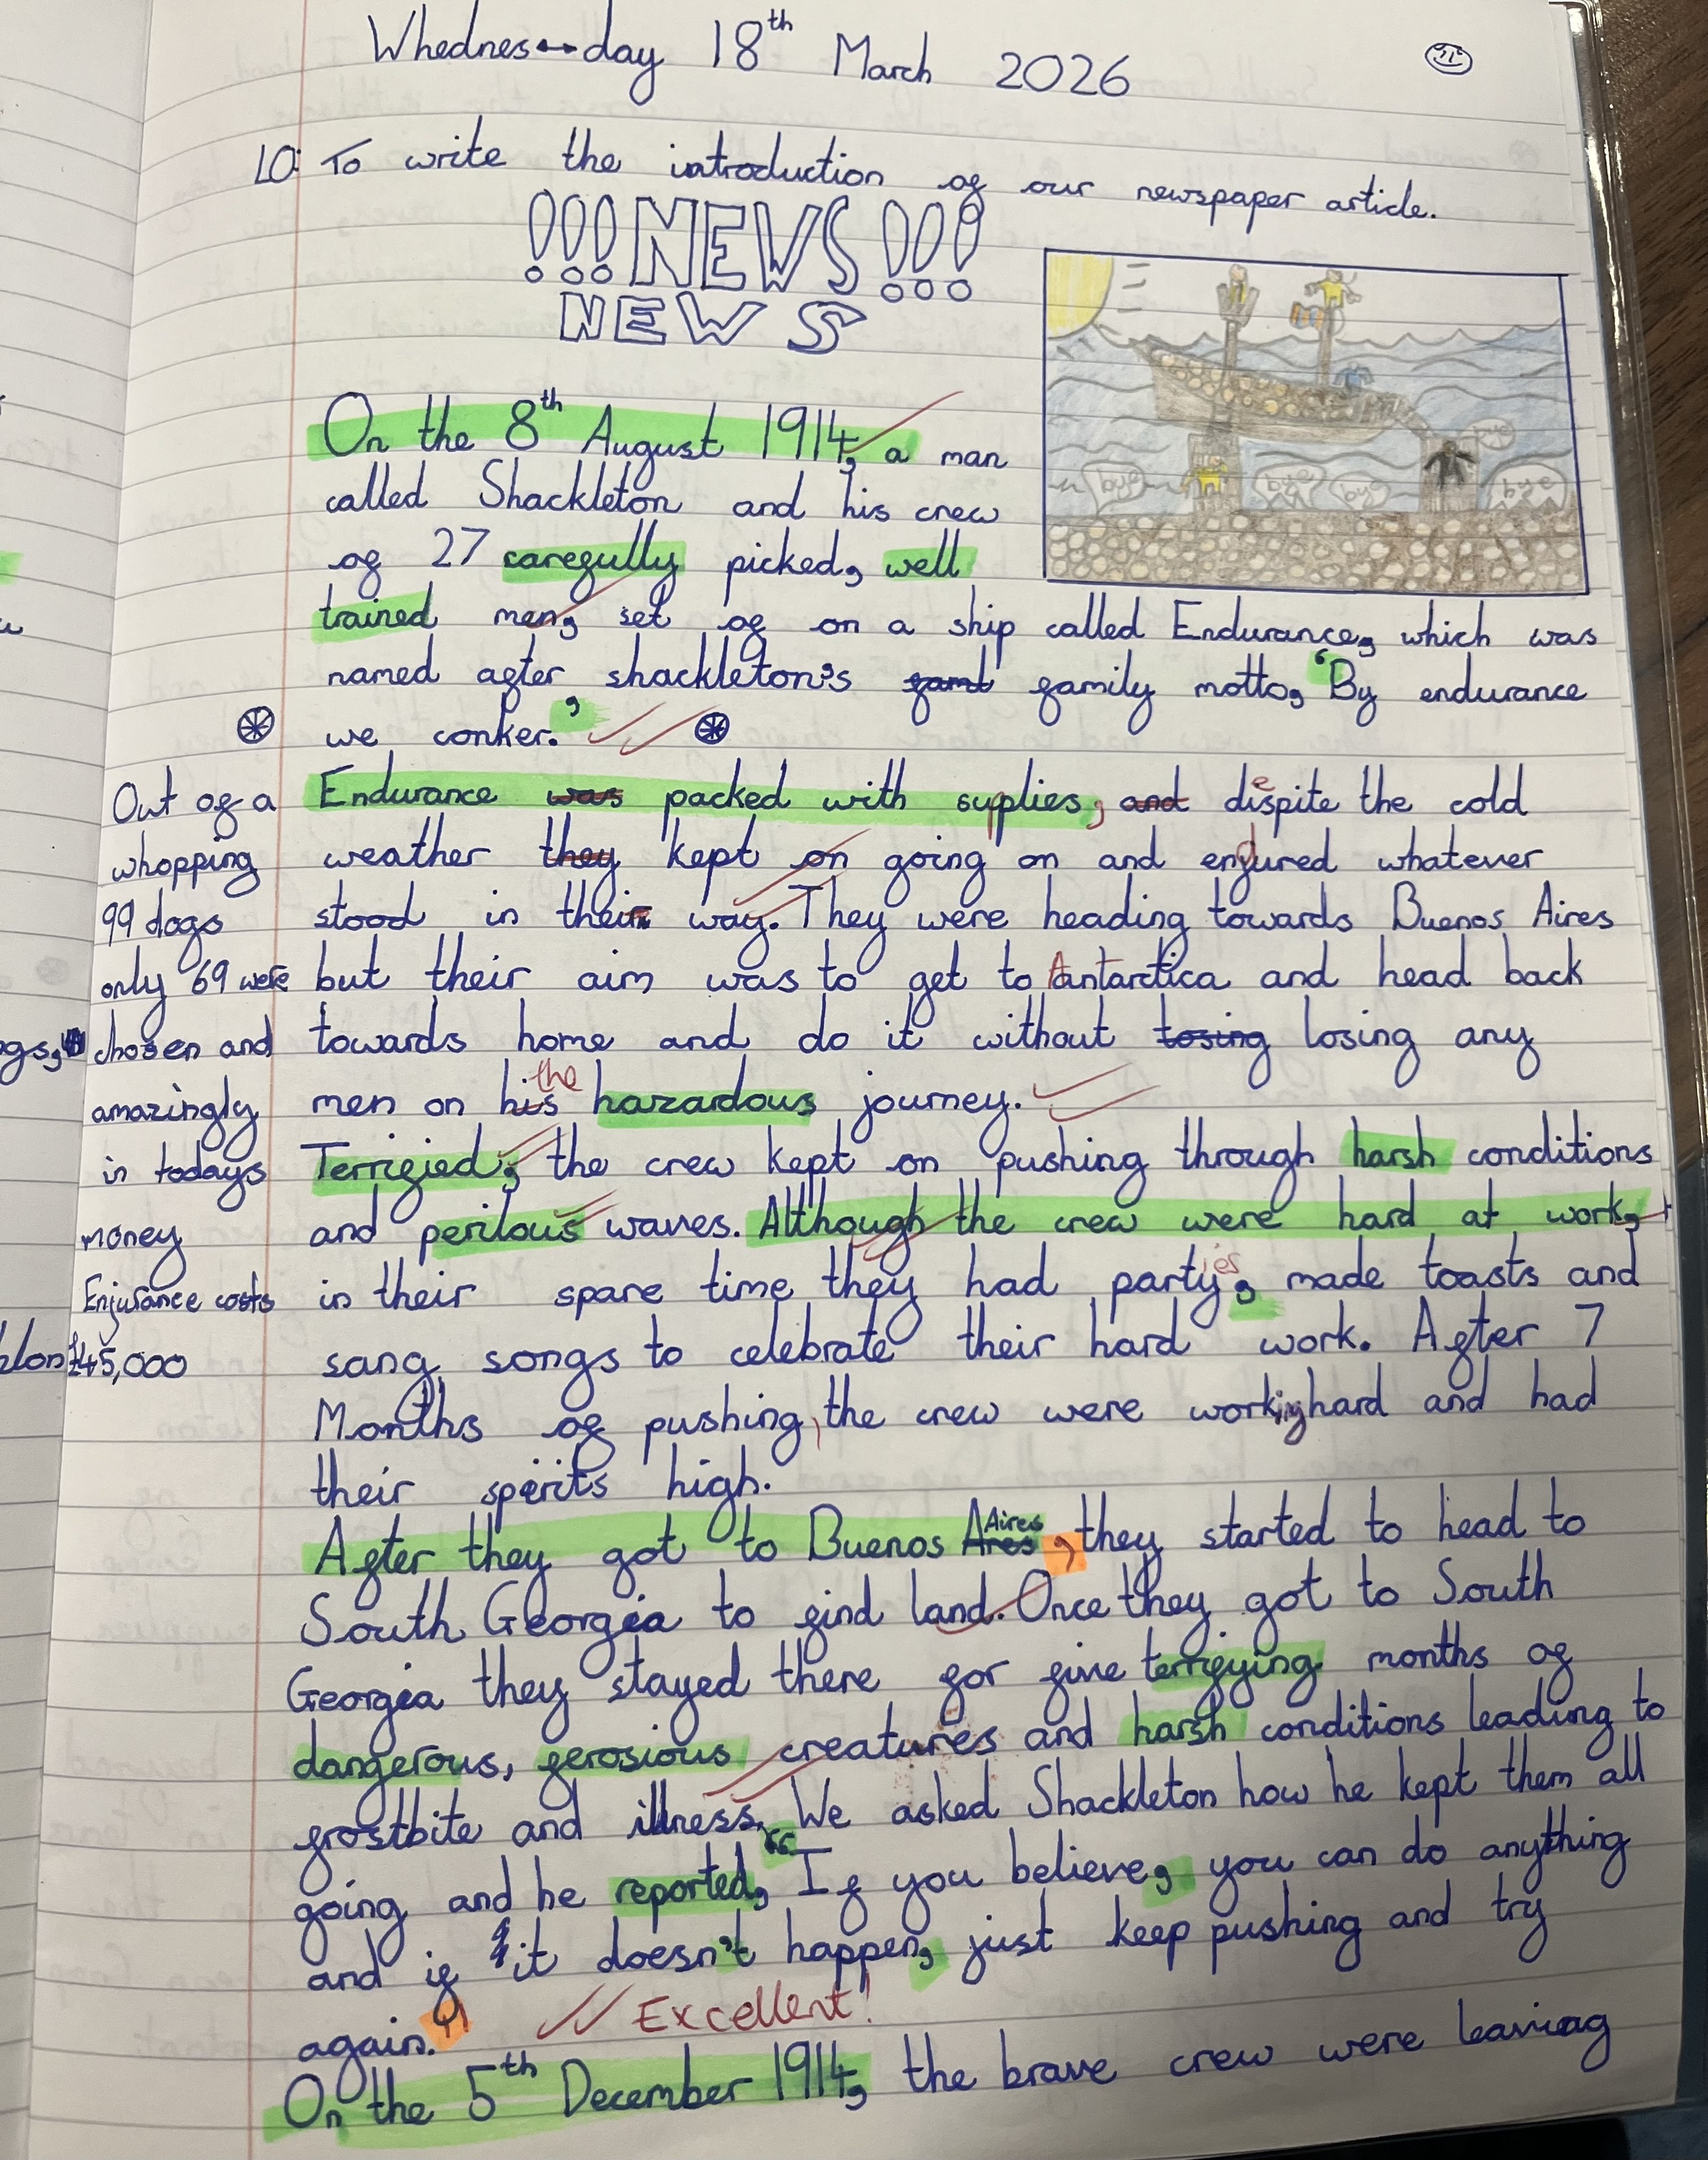 Whednes day 18th March 2026
LO: To write the introduction of our newspaper article.
!!!NEWS!!!
NEWS
On the 8th August 1914, a man
called Shackleton and his crew
of 27 carefully picked, well
trained men, set of on a ship called Endurance, which was
named after shackleton's famil family motto, 'By endurance
we conker.'
bye
bye
bye
bye
bye
Endurance was packed with supplies, and despite the cold
weather they kept on going on and endured whatever
stood in their way. They were heading towards Buenos Aires
but their aim was to get to Antarctica and head back
towards home and do it without losing losing any
men on his the hazardous journey.
Terrified, the crew kept on pushing through harsh conditions
and perilous waves. Although the crew were hard at work,
in their spare time they had partyies, made toasts and
sang songs to celebrate their hard work. After 7
Months of pushing, the crew were working hard and had
their spirits high.
After they got to Buenos Ares Aires, they started to head to
South Georgia to find land. Once they got to South
Georgia they stayed there for five terrifying months of
dangerous, ferosious creatures and harsh conditions leading to
frostbite and illness. We asked Shackleton how he kept them all
going and he reported, "If you believe, you can do anything
and if it doesn't happen, just keep pushing and try
again."
Excellent!
On the 5th December 1914, the brave crew were leaving
Out of a
whopping
99 dogs
only 69 were
chosen and
amazingly
in todays
money
Enjurance costs
£45,000